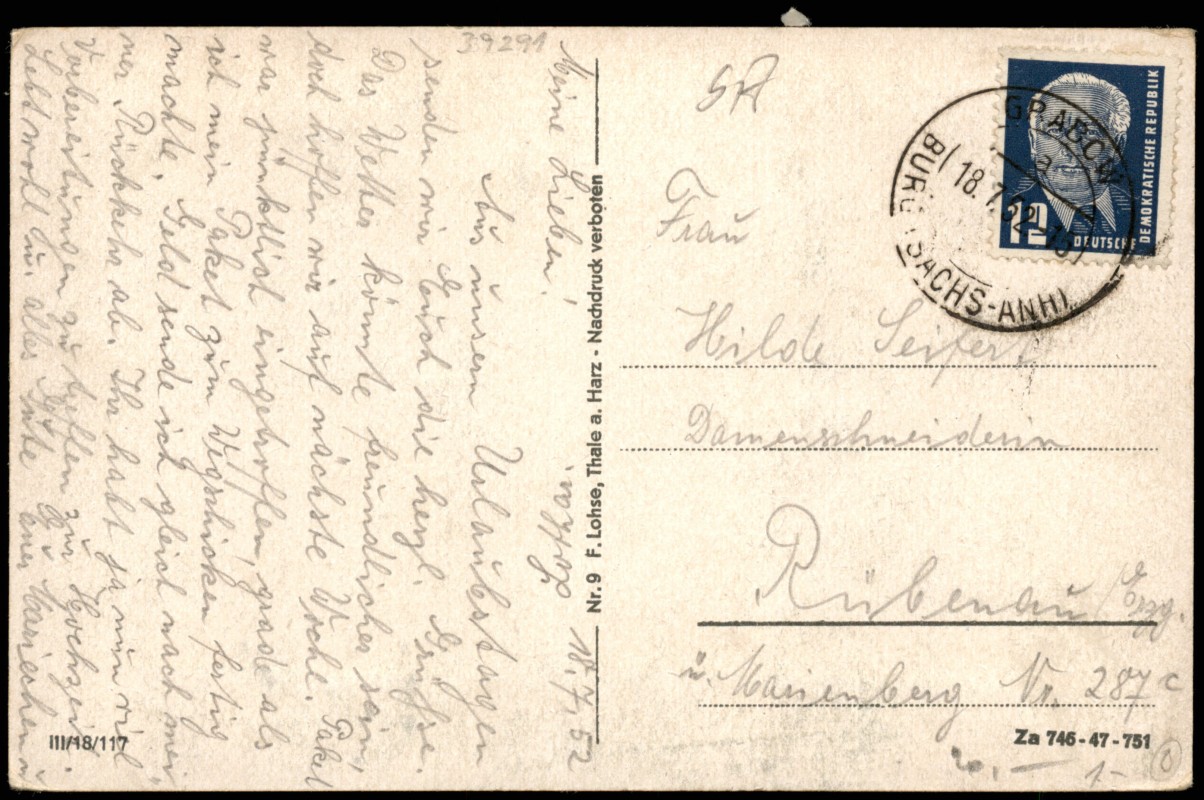 39291
Meine Lieben! 18.7.52
Aus unsern Urlaubstagen
senden wir Euch die herzl. Grüße.
Das Wetter könnte freundlicher sein,
doch hoffen wir auf nächste Woche. Paket
war pünktlich eingetroffen, grade als
ich mein Paket zum Wegschicken fertig
machte. Geld sende ich gleich nach mei-
ner Rückkehr ab. Ihr habt ja nun viel
Vorbereitungen zu treffen zur Hochzeit.
Lebt wohl u. alles Gute Euer Mariechen u
III/18/117
Nr. 9 F. Lohse, Thale a. Harz - Nachdruck verboten
Frau
Hilde Seifert
Damenschneiderin
Rübenau/Erzg.
ü. Marienberg Nr. 287c
Za 746-47-751
1-
12
DEUTSCHE
DEMOKRATISCHE REPUBLIK
GRABOW
18.7.52-15
BURG
SACHS-ANH